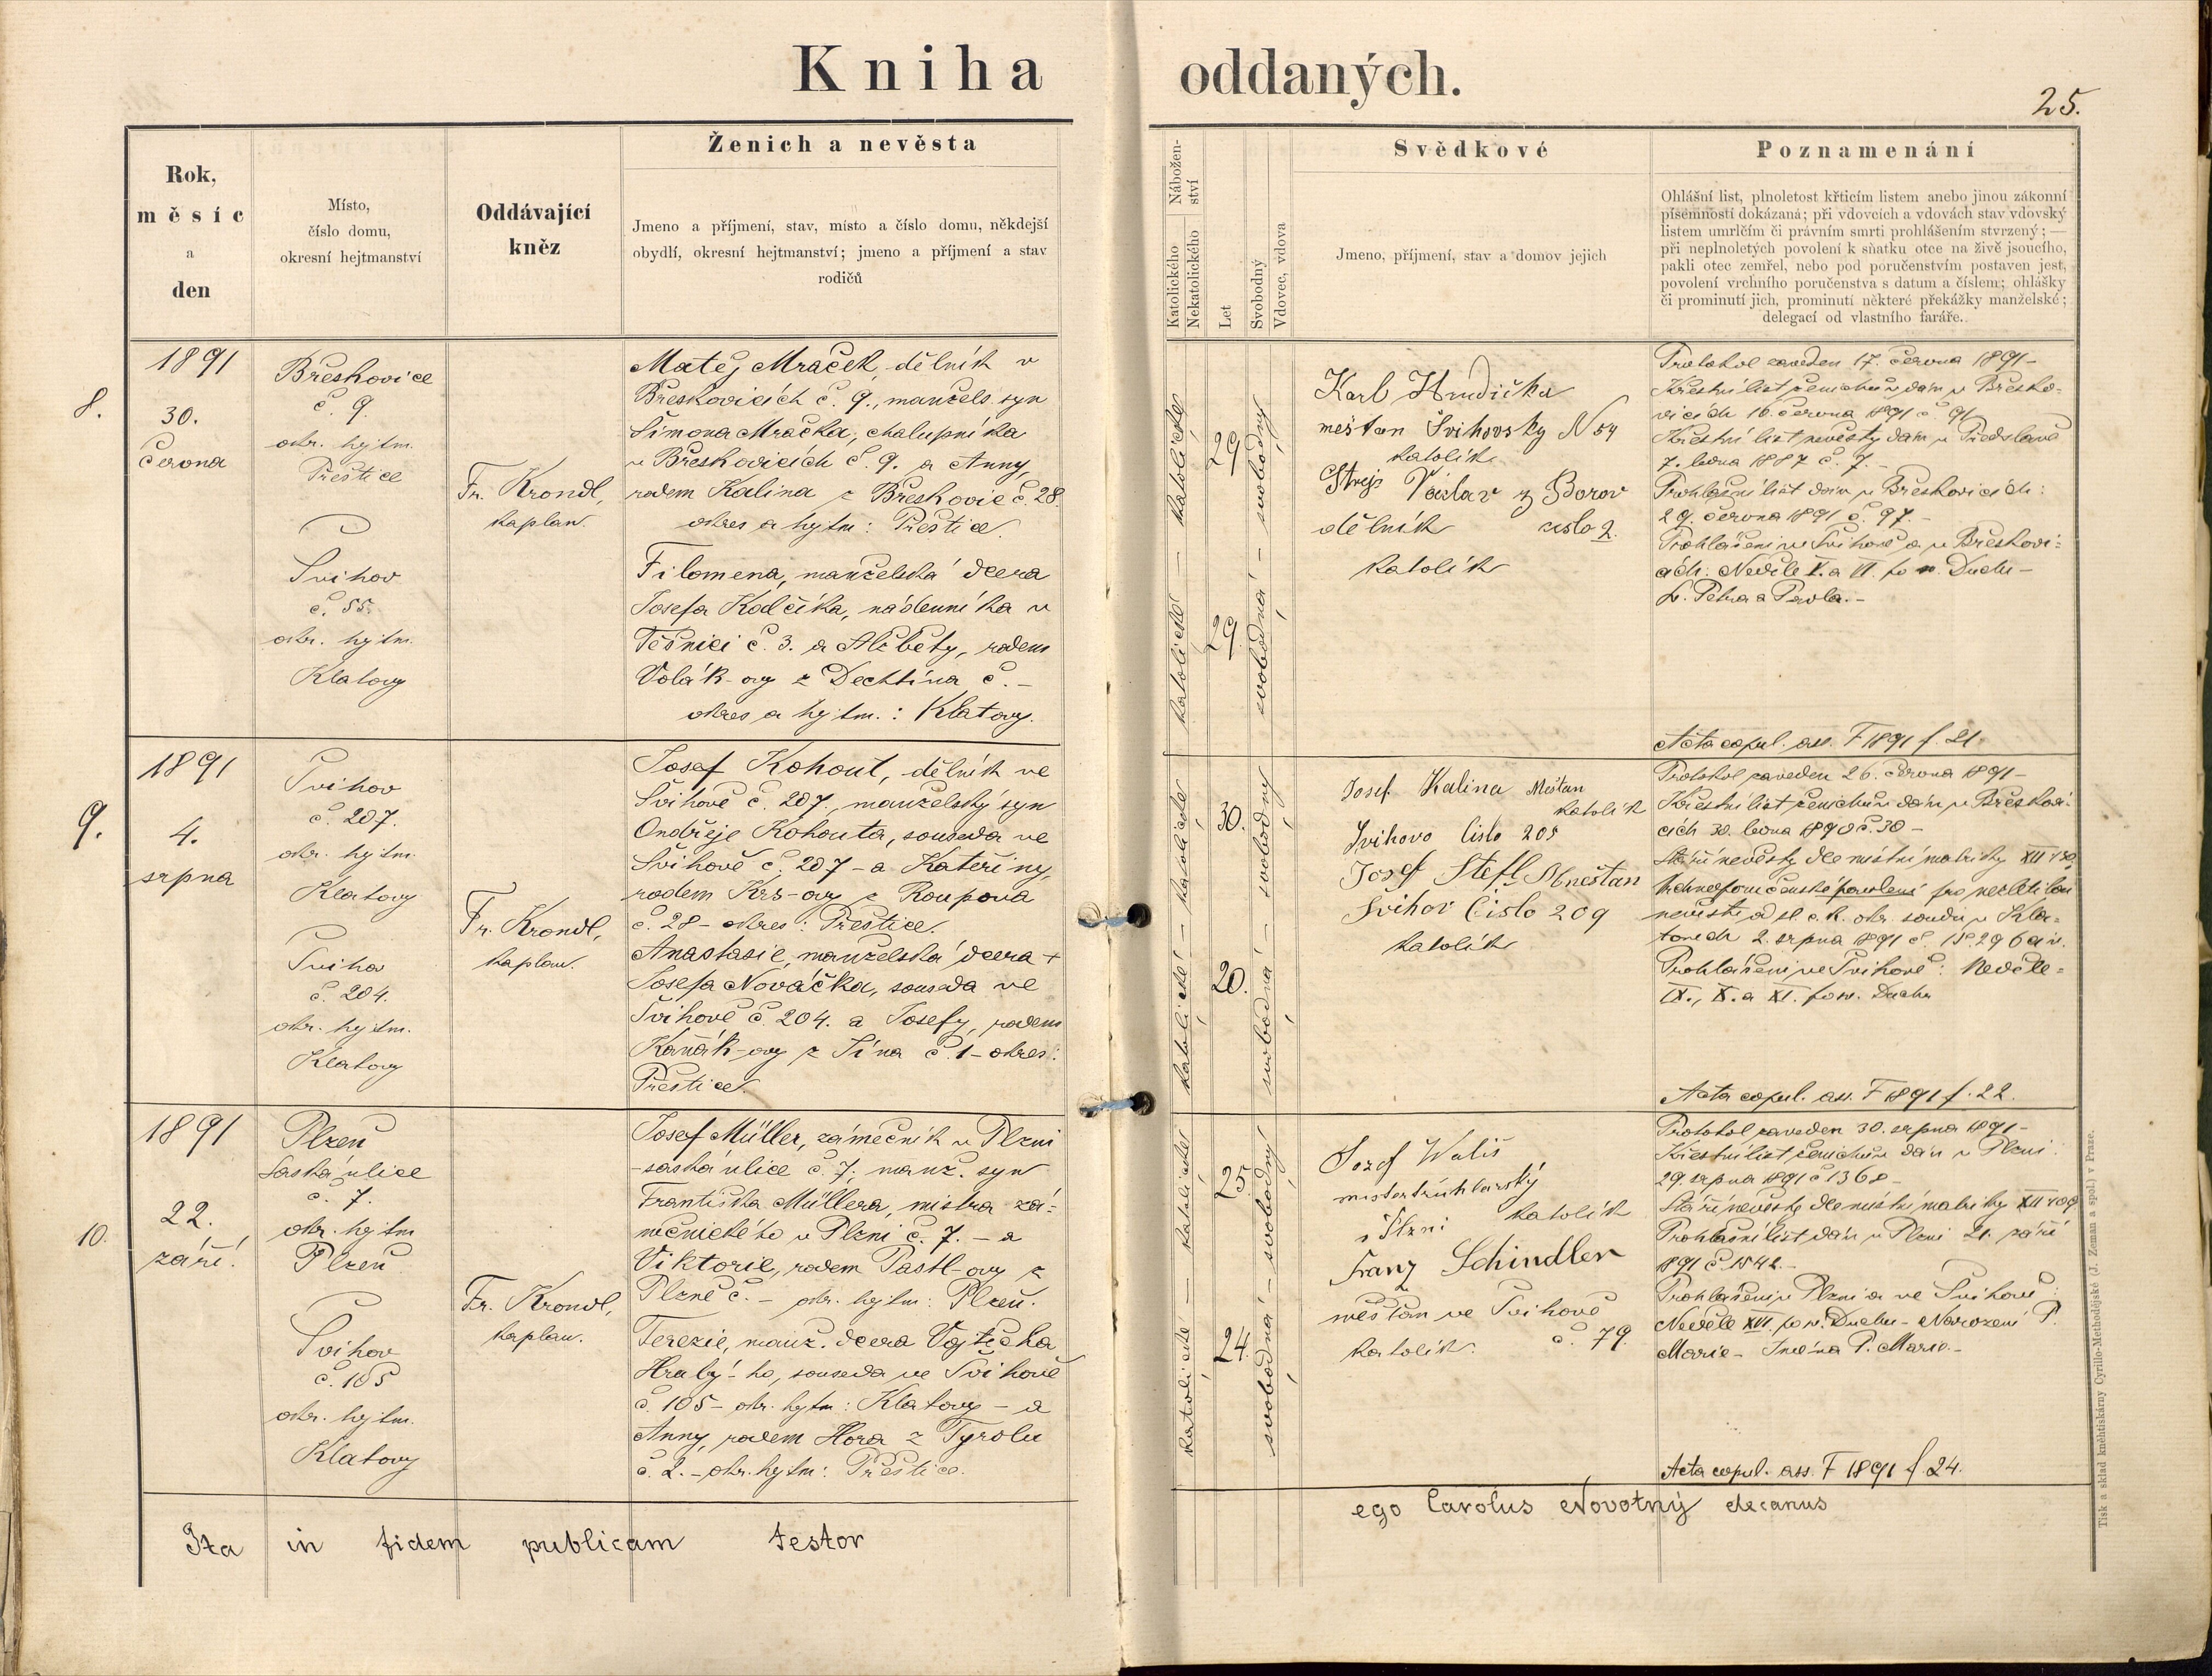 Kniha oddaných.
25.
Rok,
měsíc
a
den
Místo,
číslo domu,
okresní hejtmanství
Oddávající
kněz
Ženich a nevěsta
Jmeno a příjmení, stav, místo a číslo domu, někdejší
obydlí, okresní hejtmanství; jmeno a příjmení a stav
rodičů
Náboženství
Katolického
Nekatolického
Let
Svobodný
Vdovec, vdova
Svědkové
Jmeno, příjmení, stav a domov jejich
Poznamenání
Ohlášní list, plnoletost křticím listem anebo jinou zákonní
písemností dokázaná; při vdovcích a vdovách stav vdovský
listem umrlčím či právním smrti prohlášením stvrzený; —
při neplnoletých povolení k sňatku otce na živě jsoucího,
pakli otec zemřel, nebo pod poručenstvím postaven jest,
povolení vrchního poručenstva s datum a číslem; ohlášky
či prominutí jich, prominutí některé překážky manželské;
delegací od vlastního faráře.
8.
1891
30.
června
Břeskovice
č. 9.
okr. hejtm.
Přeštice
Švihov
č. 55.
okr. hejtm.
Klatovy
Fr. Krondl,
kaplan.
Matěj Mraček, dělník v
Břeskovicích č. 9., manžels. syn
Šimona Mračka, chalupníka
v Břeskovicích č. 9. a Anny,
rodem Kalina z Břeskovic č. 28.
okres a hejtm: Přeštice.
Filomena, manželská dcera
Josefa Kodčíka, nádenníka v
Těšnici č. 3. a Alžběty, rodem
Volák-ovy z Dechtína č. –
okres a hejtm.: Klatovy.
katolické — katolické
29
29.
svobodná — svobodný
Karl Hrudička
měštan Švihovsky N 54
katolík
Strejc Václav z Borov
dělník číslo 2.
katolík
Protokol zaveden 17. června 1891 –
Křestní list ženichův dán v Břesko-
vicích 16. června 1891 č. 91
Křestní list nevěsty dán v Předslavě
7. ledna 1887 č. 7. –
Prohlašní list dán v Břeskovicích:
29. června 1891 č. 97. –
Prohlášeni ve Švihově a v Břeskovi-
cích: Neděle V. a VI. po sv. Duchu –
sv. Petra a Pavla. –
Acta copul. ass. F 1891 f. 21.
9.
1891
4.
srpna
Švihov
č. 207.
okr. hejtm.
Klatovy
Švihov
č. 204.
okr. hejtm.
Klatovy
Fr. Krondl,
kaplan.
Josef Kohout, dělník ve
Švihově č. 207., manželský syn
Ondřeje Kohouta, souseda ve
Švihově č. 207 – a Kateřiny,
rodem Krs-ovy z Roupova
č. 28 – okres: Přeštice.
Anastasie, manželská dcera +
Josefa Nováčka, souseda ve
Švihově č. 204. a Josefy, rodem
Kaňák-ovy z Jína č. 1 – okres:
Přeštice.
katolické – katolické
30.
20.
svobodná — svobodný
Josef Kalina Měštan
katolík
Švihovo Číslo 205
Josef Štefl Měštan
Švihov Číslo 209
katolík
Protokol zaveden 26. června 1891 –
Křestní list ženichův dán v Břeskovi-
cích 30. ledna 1890 č. 30 –
Stáří nevěsty dle místní matriky XII
Vrchnoporučenské povolení pro nezletilou
nevěstu od sl. c. k. okr. soudu v Kla-
tovech 2. srpna 1891 č.
Prohlášeni ve Švihově: Neděle –
IX., X. a XI. po sv. Duchu
Acta copul. ass. F 1891 f. 22.
10.
1891
22.
září.
Plzeň
Saská ulice
č. 7.
okr. hejtm
Plzeň
Švihov
č. 105
okr. hejtm.
Klatovy
Fr. Krondl,
kaplan.
Josef Müller, zámečník v Plzni
– saská ulice č. 7; manž. syn
Františka Müllera, mistra zá-
mečnického v Plzni č. 7. – a
Viktorie, rodem Pastl-ovy z
Plzně č. – okr. hejtm: Plzeň.
Terezie, manž. dcera Vojtěcha
Hrabý-ho, souseda ve Švihově
č. 105 – okr. hejtm: Klatovy – a
Anny, rodem Hora z Tyrolu
č. 2. – okr. hejtm: Přeštice.
katolické — katolické
25.
24.
svobodná — svobodný
Jozef Wališ
mister truhlarský
v Plzni katolík
Franz Schindler
měšťan ve Švihově
katolík. č. 79.
Protokol zaveden 30. srpna 1891 –
Křestní list ženichův dán v Plzni
29. srpna 1891 č 1368 –
Stáří nevěsty dle místní matriky XII
Prohlašní list dán v Plzni 21. září
1891 č. 1542. –
Prohlášeni v Plzni a ve Švihově:
Neděle XVI. po sv. Duchu – Narození P.
Marie – Jména P. Marie. –
Acta copul. ass. F 1891 f. 24.
Ita in fidem publicam testor ego Carolus Novotný decanus
Tisk a sklad kněhtiskárny Cyrillo-Methodějské (J. Zeman a spol.) v Praze.